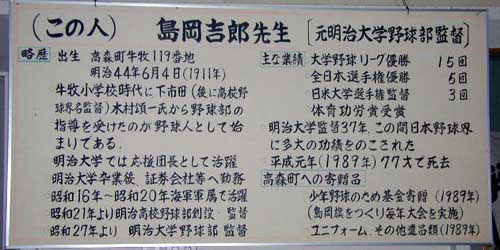 (この人) 島岡吉郎先生 〔元明治大学野球部監督〕
略歴 出生 高森町牛牧119番地
明治44年6月4日(1911年)
牛牧小学校時代に下市田(後に高校野
球界名監督)木村頌一氏から野球部の
指導を受けたのが野球人として始
まりである.
明治大学では応援団長として活躍
明治大学卒業後、証券会社等へ勤務
昭和16年~昭和20年海軍軍属で活躍
昭和21年より明治高校野球部創設・監督
昭和27年より 明治大学野球部 監督
主な業績 大学野球リーグ優勝 15回
全日本選手権優勝 5回
日米大学選手権監督 3回
体育功労賞受賞
明治大学監督37年、この間日本野球界
に多大の功績をのこされた
平成元年(1989年)77才で死去
高森町への寄贈品
少年野球のため基金寄贈(1989年)
(島岡旗をつくり毎年大会を実施)
ユニフォーム、その他遺品類(1989年)